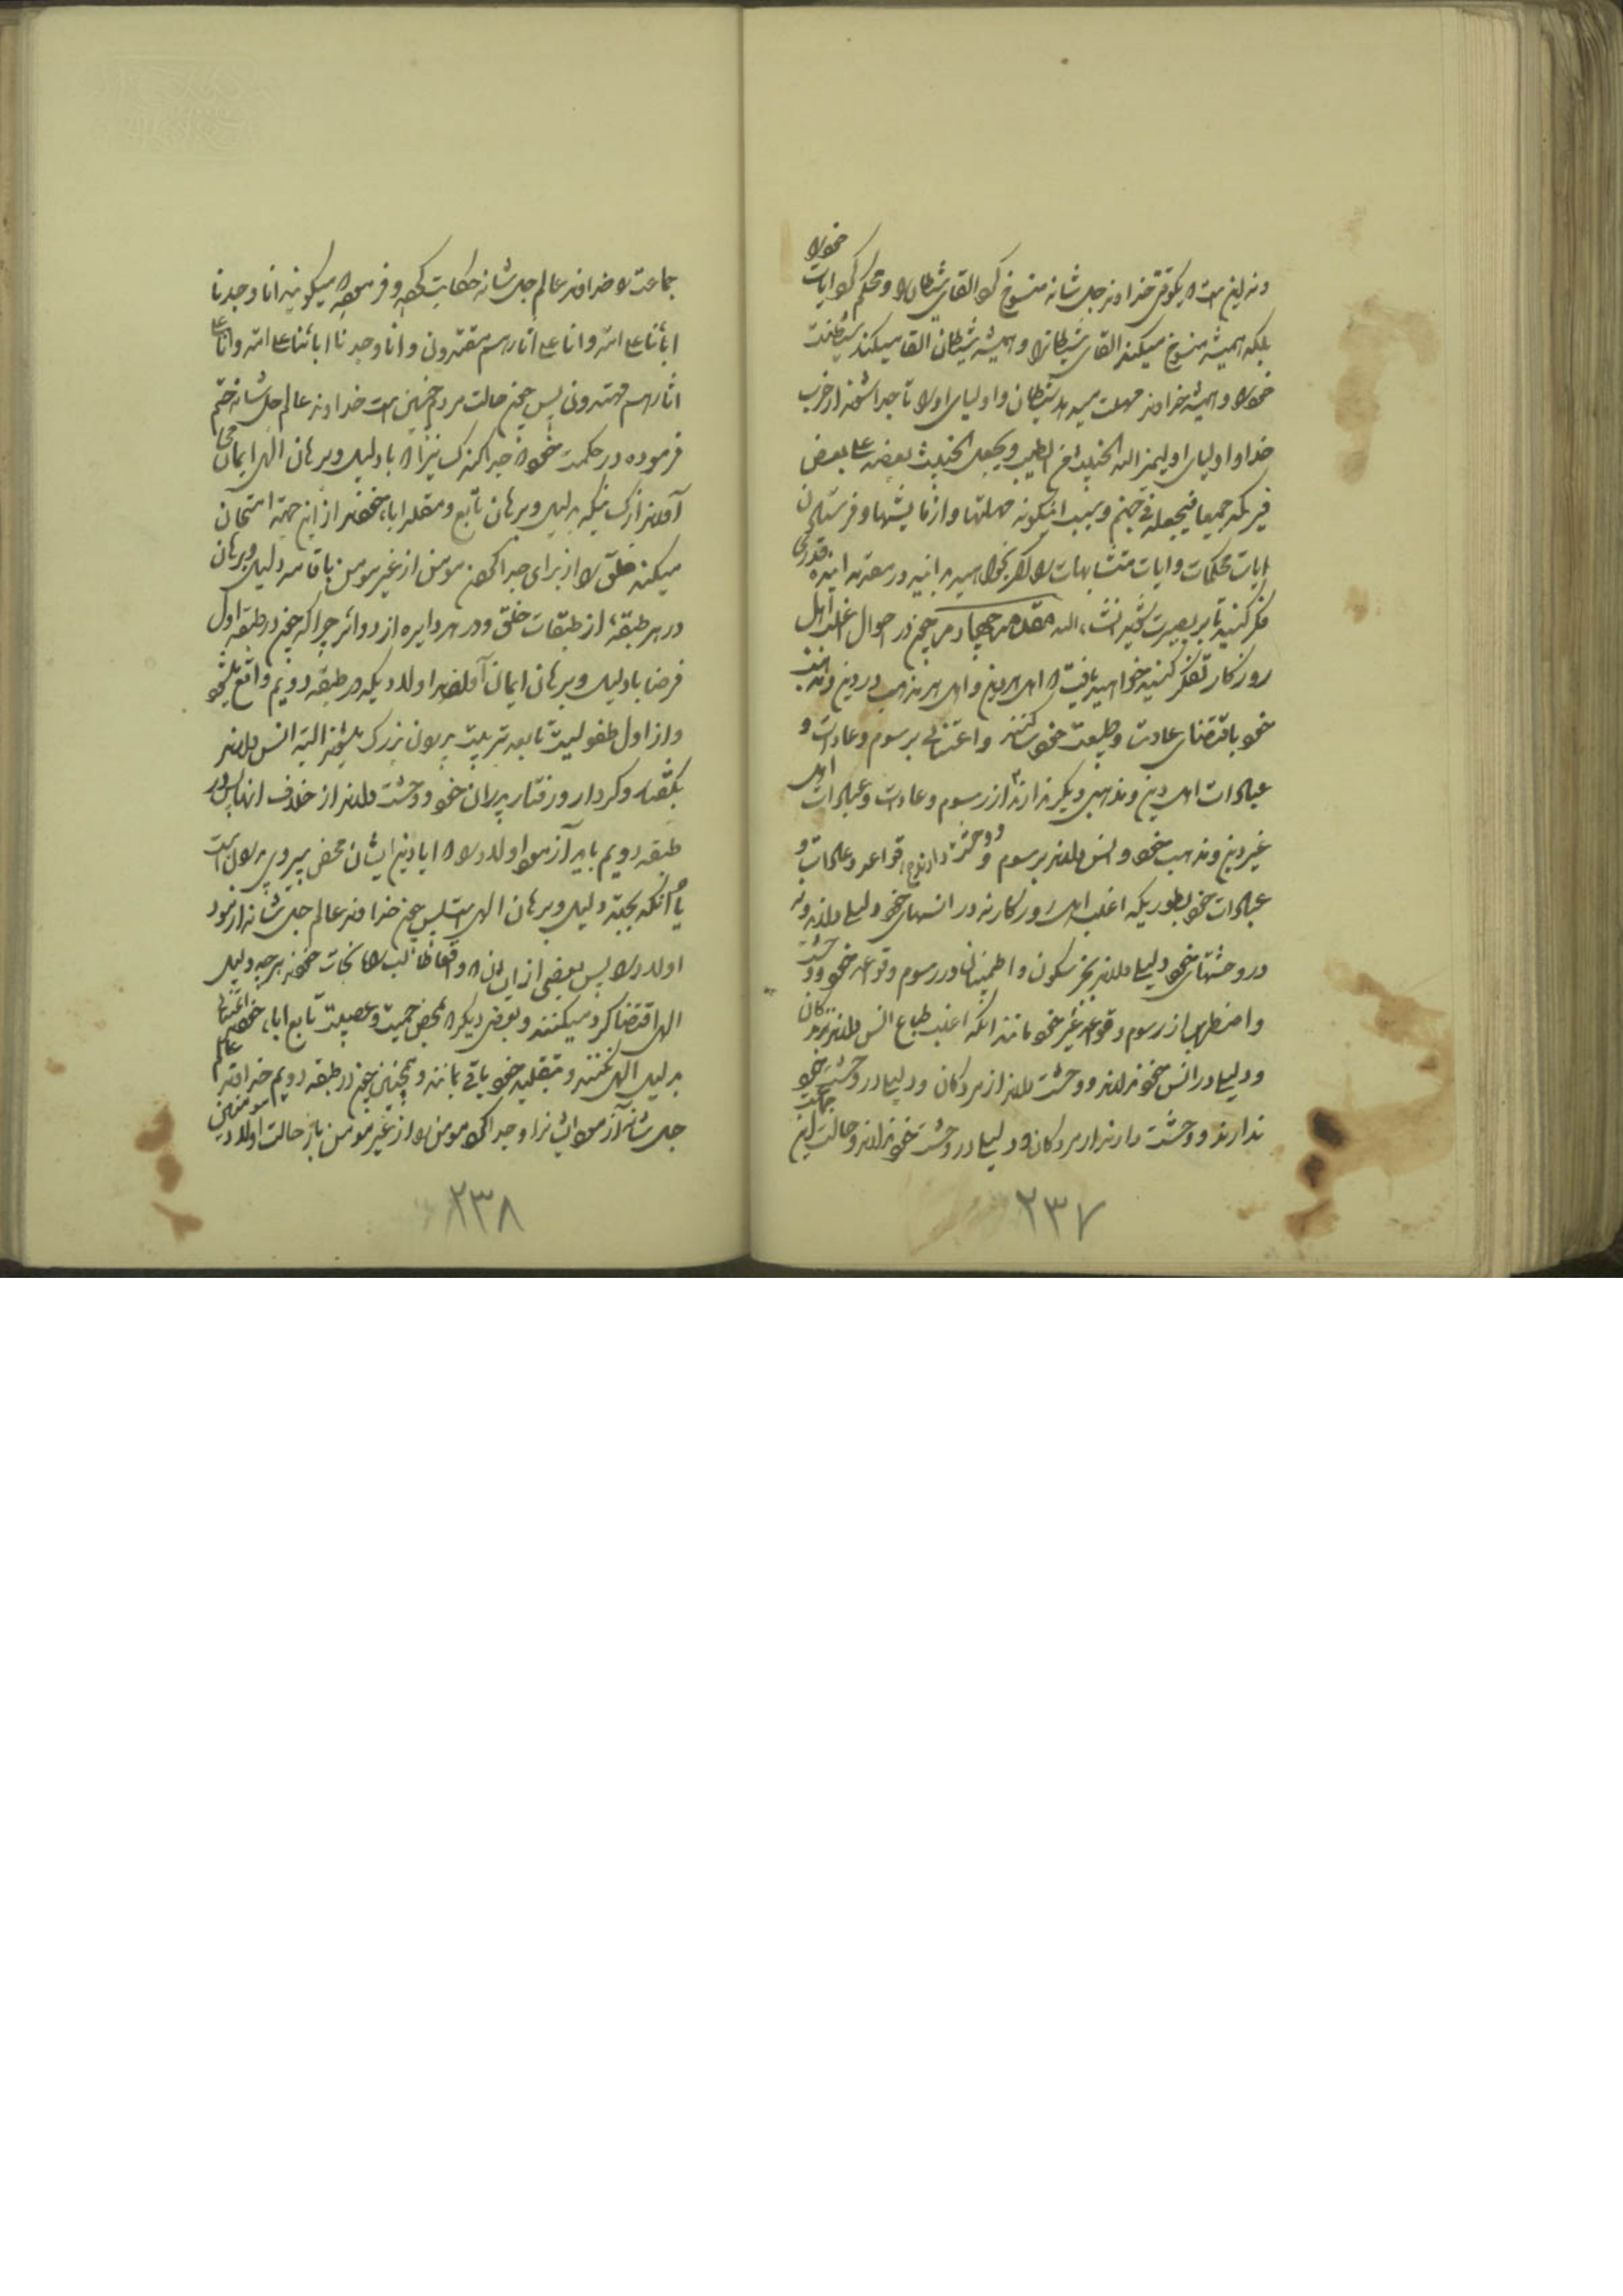 ونه این است که یکوقتی خداوند جل شانه منسوخ کرد القای شیطان را و محکم کرد ایات خود را
بلکه همیشه منسوخ میکند القای شیطانرا و همیشه شیطان القا میکند شیطنت
خود را و همیشه خداوند مهلت میدهد شیطان و اولیای او را تا جدا شوند از حزب
خدا و اولیای او لیمیز الله الخبیث من الطیب و یجعل الخبیث بعضه علی بعض
فیرکمه جمیعا فیجعله فی جهنم و بسبب اینگونه مهلتها و ازمایشها و فرستادن
ایات محکمات و ایات متشابهات را اگر بخواهید بدانید در مقدمه اینده قدری
فکر کنید تا بر بصیرت شوید انشاء الله مقدمه چهارم چون در احوال اغلب اهل
روزکار تفکر کنید خواهید یافت که اهل هر دین و اهل هر مذهب در دین و مذهب
خود باقتضای عادت و طبیعت خود ساکنند و اعتنائی برسوم و عادات و
عبادات اهل دین و مذهبی دیکر ندارند از رسوم و عادات و عبادات اهل
غیر دین و مذهب خود و انس دارند برسوم و قواعد و عادات و
عبادات خود بطوریکه اغلب اهل روزکار نه در انسهای خود دلیلی دارند و نه
در وحشتهای خود دلیلی دارند بجز سکون و اطمینان در رسوم و قواعد خود و وحشت
و اضطراب از رسوم و قواعد غیر خود مانند انکه اغلب طباع انس دارند بزندکان
و دلیلی در انس خود ندارند و وحشت دارند از مردکان و دلیلی در وحشت خود
ندارند و وحشت دارند از مردکان و دلیلی در وحشت خود ندارند و حالت این جماعت
۲۳۷
جماعت را خداوند عالم جل شانه حکایت کرده و فرموده که میگویند انا وجدنا
ابائنا علی امة و انا علی اثارهم مقتدون و انا وجدنا ابائنا علی امة و انا علی
اثارهم مهتدون پس چون حالت مردم چنین است خداوند عالم جل شانه حتم
فرموده در حکمت خود که جدا کند کسانیرا که با دلیل و برهان الهی ایمان می
آورند از کسانیکه بی دلیل و برهان تابع و مقلد اباء خودند از این جهة امتحان
میکند خلق را از برای جدا کردن مومن از غیر مومن باقامه دلیل و برهان
در هر طبقهء از طبقات خلق و در هر دایره از دوائر چرا که چون در طبقه اول
فرضا با دلیل و برهان ایمان آوردند اولادیکه در طبقه دویم واقع میشود
و از اول طفولیت تابع تربیت پدران بزرک میشوند البته انس دارند
بگفتار و کردار و رفتار پدران خود و وحشت دارند از خلاف انها پس در
طبقه دویم باید آزمود اولاد را که ایا دین ایشان محض پیروی پدران است
یا آنکه بجهة دلیل و برهان الهی است پس چون خداوند عالم جل شانه ازمود
اولاد را پس بعضی از ایشان که واقعا طالب راه نجات خودند بر حسب دلیل
الهی اقتضا کرد میکنند و بعضی دیگر که محض حمیت و عصبیت تابع اباء خودند اعتنائی
بدلیل الهی نکنند و بتقلید خود باقی مانند و همچنین چون در طبقه دویم خداوند عالم
جل شانه آزمود ایشانرا و جدا کرد مومن را از غیر مومن باز حالت اولاد مومنین
۲۳۸